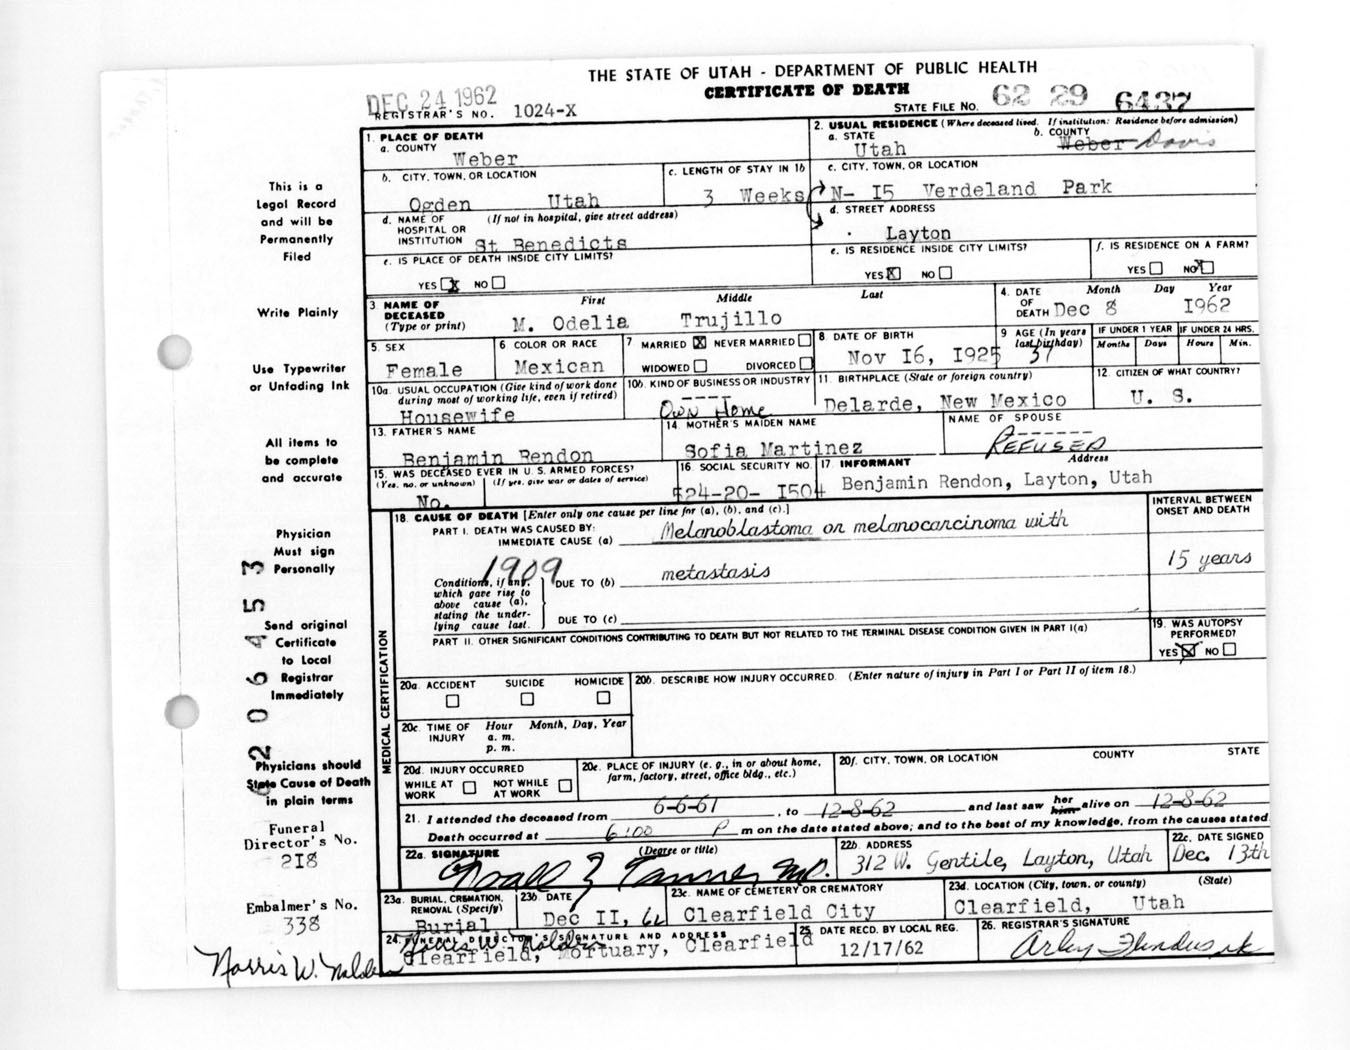 THE STATE OF UTAH - DEPARTMENT OF PUBLIC HEALTH
CERTIFICATE OF DEATH
DEC 24 1962
REGISTRAR'S NO. 1024-X
STATE FILE NO. 62 29 6437
This is a
Legal Record
and will be
Permanently
Filed
Write Plainly
Use Typewriter
or Unfading Ink
All items to
be complete
and accurate
Physician
Must sign
Personally
Send original
Certificate
to Local
Registrar
Immediately
Physicians should
State Cause of Death
in plain terms
Funeral
Director's No.
218
Embalmer's No.
338
62 06453
1. PLACE OF DEATH
a. COUNTY
Weber
b. CITY, TOWN, OR LOCATION
Ogden Utah
c. LENGTH OF STAY IN 1b
3 Weeks
d. NAME OF HOSPITAL OR INSTITUTION (If not in hospital, give street address)
St Benedicts
e. IS PLACE OF DEATH INSIDE CITY LIMITS?
YES X NO
2. USUAL RESIDENCE (Where deceased lived. If institution: Residence before admission)
a. STATE
Utah
b. COUNTY
Weber Davis
c. CITY, TOWN, OR LOCATION
N- I5 Verdeland Park
d. STREET ADDRESS
Layton
e. IS RESIDENCE INSIDE CITY LIMITS?
YES X NO
f. IS RESIDENCE ON A FARM?
YES NO X
3 NAME OF DECEASED (Type or print)
First Middle Last
M. Odelia Trujillo
4. DATE OF DEATH Month Day Year
Dec 8 I962
5. SEX
Female
6 COLOR OR RACE
Mexican
7 MARRIED X NEVER MARRIED
WIDOWED DIVORCED
8 DATE OF BIRTH
Nov I6, I925
9 AGE (In years last birthday)
37
IF UNDER 1 YEAR Months Days
IF UNDER 24 HRS. Hours Min.
10a. USUAL OCCUPATION (Give kind of work done during most of working life, even if retired)
Housewife
10b. KIND OF BUSINESS OR INDUSTRY
Own Home
11. BIRTHPLACE (State or foreign country)
Delarde, New Mexico
12. CITIZEN OF WHAT COUNTRY?
U. S.
13. FATHER'S NAME
Benjamin Rendon
14. MOTHER'S MAIDEN NAME
Sofia Martinez
NAME OF SPOUSE
REFUSED
15. WAS DECEASED EVER IN U.S. ARMED FORCES?
(Yes, no, or unknown) (If yes, give war or dates of service)
No.
16. SOCIAL SECURITY NO.
524-20- I504
17. INFORMANT Address
Benjamin Rendon, Layton, Utah
MEDICAL CERTIFICATION
18. CAUSE OF DEATH [Enter only one cause per line for (a), (b), and (c).]
PART I. DEATH WAS CAUSED BY:
IMMEDIATE CAUSE (a) Melanoblastoma or melanocarcinoma with
INTERVAL BETWEEN ONSET AND DEATH
15 years
1909
Conditions, if any, which gave rise to above cause (a), stating the underlying cause last.
DUE TO (b) metastasis
DUE TO (c)
PART II. OTHER SIGNIFICANT CONDITIONS CONTRIBUTING TO DEATH BUT NOT RELATED TO THE TERMINAL DISEASE CONDITION GIVEN IN PART I(a)
19. WAS AUTOPSY PERFORMED?
YES X NO
20a. ACCIDENT SUICIDE HOMICIDE
20b. DESCRIBE HOW INJURY OCCURRED. (Enter nature of injury in Part I or Part II of item 18.)
20c. TIME OF INJURY Hour Month, Day, Year
a. m.
p. m.
20d. INJURY OCCURRED
WHILE AT WORK NOT WHILE AT WORK
20e. PLACE OF INJURY (e. g., in or about home, farm, factory, street, office bldg., etc.)
20f. CITY, TOWN, OR LOCATION COUNTY STATE
21. I attended the deceased from 6-6-61, to 12-8-62 and last saw her him alive on 12-8-62
Death occurred at 6:00 P m on the date stated above; and to the best of my knowledge, from the causes stated.
22a. SIGNATURE (Degree or title)
Noall Z Tanner M.D.
22b. ADDRESS
312 W. Gentile, Layton, Utah
22c. DATE SIGNED
Dec. 13th
23a. BURIAL, CREMATION, REMOVAL (Specify)
Burial
23b. DATE
Dec II, 62
23c. NAME OF CEMETERY OR CREMATORY
Clearfield City
23d. LOCATION (City, town, or county) (State)
Clearfield, Utah
24. FUNERAL DIRECTOR'S SIGNATURE AND ADDRESS
Clearfield, Mortuary, Clearfield
25. DATE RECD. BY LOCAL REG.
12/17/62
26. REGISTRAR'S SIGNATURE
Norris W.